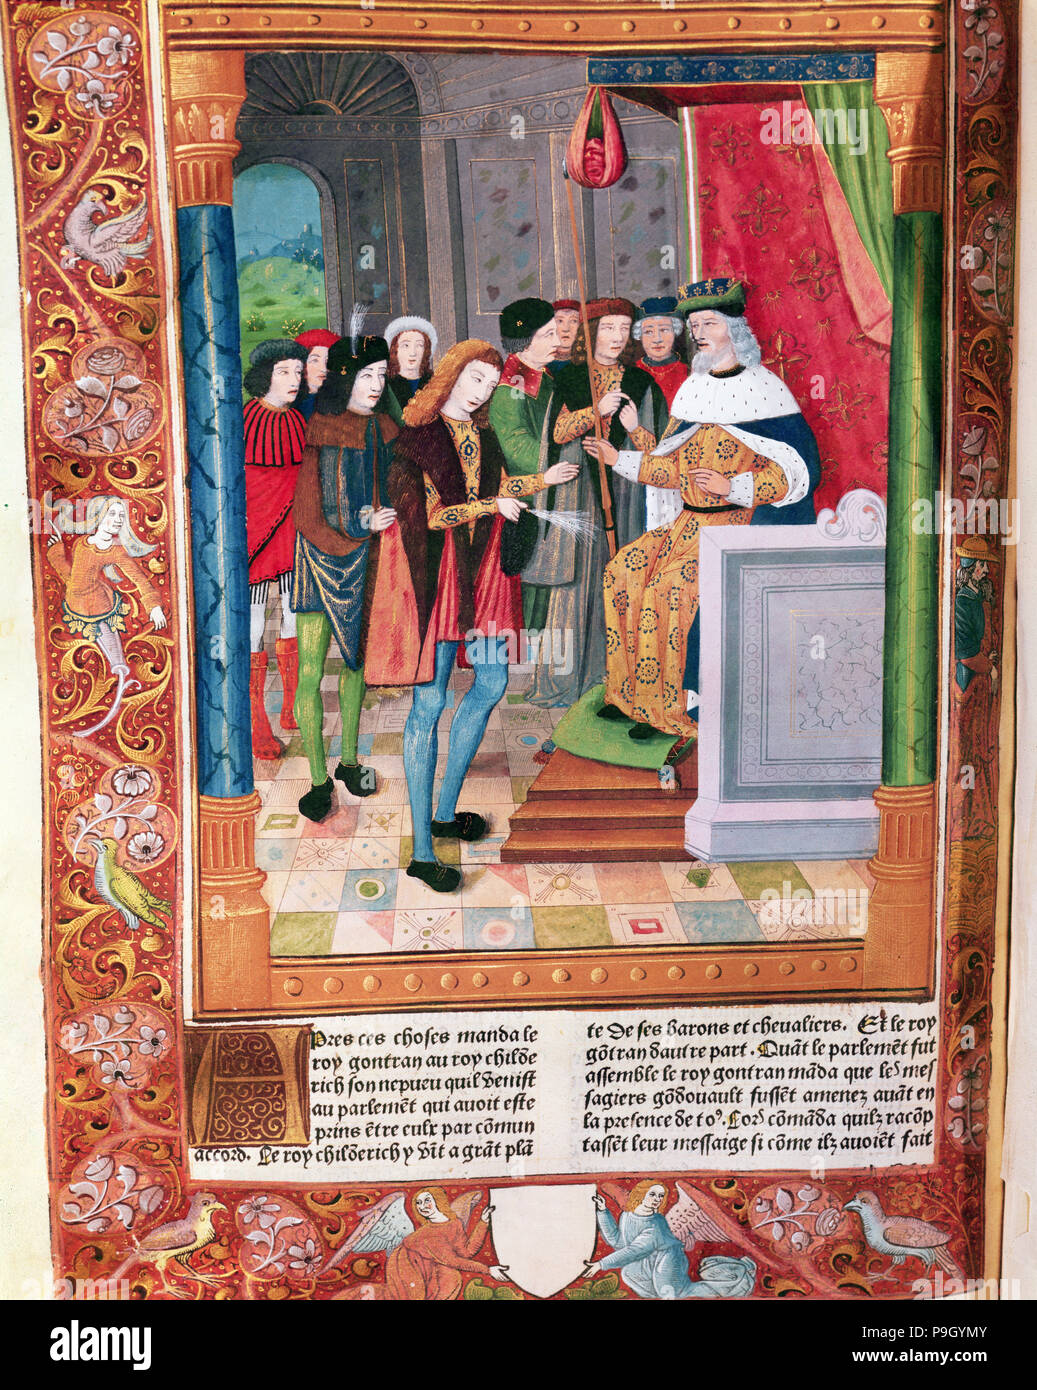 Apres ces choses manda le
roy gontran au roy childe
rich son nepueu quil venist
au parlemēt qui auoit este
prins ētre eulx par cōmun
accord. Le roy childerich y vīt a grāt plā
te de ses barons et cheualiers. Et le roy
gōtran dautre part. Quāt le parlemēt fut
assemble le roy gontran māda que les mes
sagiers gōdouault fussēt amenez auāt en
la presence de to⁹. Lors cōmāda quilz racōp
tassēt leur messaige si cōme ilz auoiēt fait
alamy
alamy
Image ID: P9GYMY
www.alamy.com